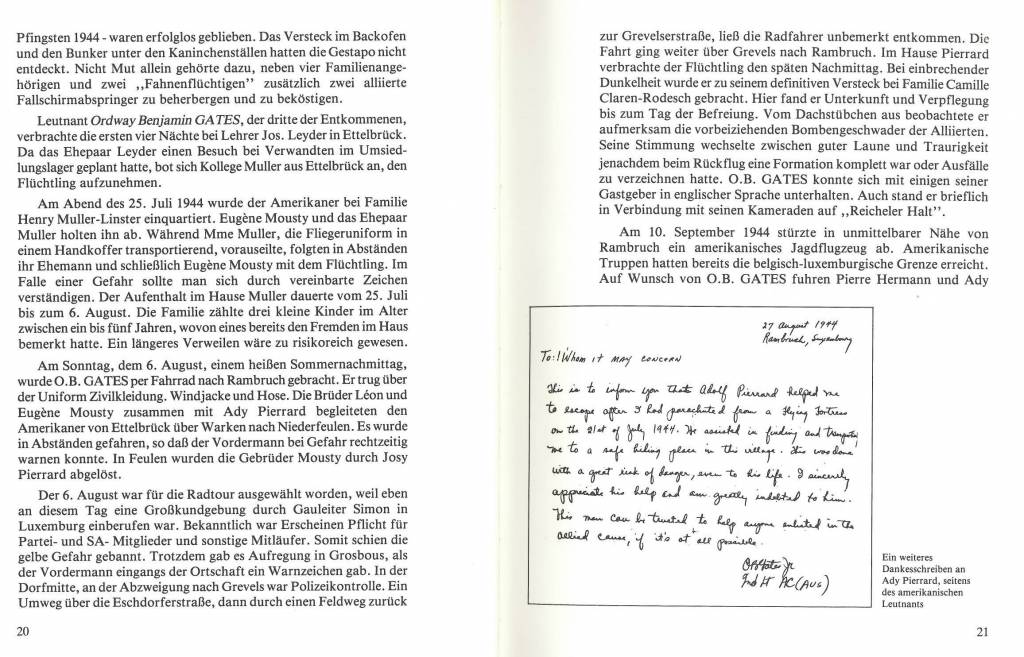 Pfingsten 1944 - waren erfolglos geblieben. Das Versteck im Backofen
und den Bunker unter den Kaninchenställen hatten die Gestapo nicht
entdeckt. Nicht Mut allein gehörte dazu, neben vier Familienange-
hörigen und zwei ,,Fahnenflüchtigen” zusätzlich zwei alliierte
Fallschirmabspringer zu beherbergen und zu beköstigen.
Leutnant Ordway Benjamin GATES, der dritte der Entkommenen,
verbrachte die ersten vier Nächte bei Lehrer Jos. Leyder in Ettelbrück.
Da das Ehepaar Leyder einen Besuch bei Verwandten im Umsied-
lungslager geplant hatte, bot sich Kollege Muller aus Ettelbrück an, den
Flüchtling aufzunehmen.
Am Abend des 25. Juli 1944 wurde der Amerikaner bei Familie
Henry Muller-Linster einquartiert. Eugène Mousty und das Ehepaar
Muller holten ihn ab. Während Mme Muller, die Fliegeruniform in
einem Handkoffer transportierend, vorauseilte, folgten in Abständen
ihr Ehemann und schließlich Eugène Mousty mit dem Flüchtling. Im
Falle einer Gefahr sollte man sich durch vereinbarte Zeichen
verständigen. Der Aufenthalt im Hause Muller dauerte vom 25. Juli
bis zum 6. August. Die Familie zählte drei kleine Kinder im Alter
zwischen ein bis fünf Jahren, wovon eines bereits den Fremden im Haus
bemerkt hatte. Ein längeres Verweilen wäre zu risikoreich gewesen.
Am Sonntag, dem 6. August, einem heißen Sommernachmittag,
wurde O.B. GATES per Fahrrad nach Rambruch gebracht. Er trug über
der Uniform Zivilkleidung. Windjacke und Hose. Die Brüder Léon und
Eugène Mousty zusammen mit Ady Pierrard begleiteten den
Amerikaner von Ettelbrück über Warken nach Niederfeulen. Es wurde
in Abständen gefahren, so daß der Vordermann bei Gefahr rechtzeitig
warnen konnte. In Feulen wurden die Gebrüder Mousty durch Josy
Pierrard abgelöst.
Der 6. August war für die Radtour ausgewählt worden, weil eben
an diesem Tag eine Großkundgebung durch Gauleiter Simon in
Luxemburg einberufen war. Bekanntlich war Erscheinen Pflicht für
Partei- und SA- Mitglieder und sonstige Mitläufer. Somit schien die
gelbe Gefahr gebannt. Trotzdem gab es Aufregung in Grosbous, als
der Vordermann eingangs der Ortschaft ein Warnzeichen gab. In der
Dorfmitte, an der Abzweigung nach Grevels war Polizeikontrolle. Ein
Umweg über die Eschdorferstraße, dann durch einen Feldweg zurück
20
zur Grevelserstraße, ließ die Radfahrer unbemerkt entkommen. Die
Fahrt ging weiter über Grevels nach Rambruch. Im Hause Pierrard
verbrachte der Flüchtling den späten Nachmittag. Bei einbrechender
Dunkelheit wurde er zu seinem definitiven Versteck bei Familie Camille
Claren-Rodesch gebracht. Hier fand er Unterkunft und Verpflegung
bis zum Tag der Befreiung. Vom Dachstübchen aus beobachtete er
aufmerksam die vorbeiziehenden Bombengeschwader der Alliierten.
Seine Stimmung wechselte zwischen guter Laune und Traurigkeit
jenachdem beim Rückflug eine Formation komplett war oder Ausfälle
zu verzeichnen hatte. O.B. GATES konnte sich mit einigen seiner
Gastgeber in englischer Sprache unterhalten. Auch stand er brieflich
in Verbindung mit seinen Kameraden auf ,,Reicheler Halt”.
Am 10. September 1944 stürzte in unmittelbarer Nähe von
Rambruch ein amerikanisches Jagdflugzeug ab. Amerikanische
Truppen hatten bereits die belgisch-luxemburgische Grenze erreicht.
Auf Wunsch von O.B. GATES fuhren Pierre Hermann und Ady
27 August 1944
Rambruch, Luxembourg
To: Whom it may concern
This is to inform you that Adolf Pierrard helped me
to escape after I had parachuted from a flying fortress
on the 21st of July 1944. He assisted in finding and transporting
me to a safe hiding place in this village. This was done
with a great risk of danger, even to his life. I sincerely
appreciate his help and am greatly indebted to him.
This man can be trusted to help anyone enlisted in the
allied cause, if it's at all possible.
OB Gates Jr
2nd Lt AC (AUS)
Ein weiteres
Dankesschreiben an
Ady Pierrard, seitens
des amerikanischen
Leutnants
21